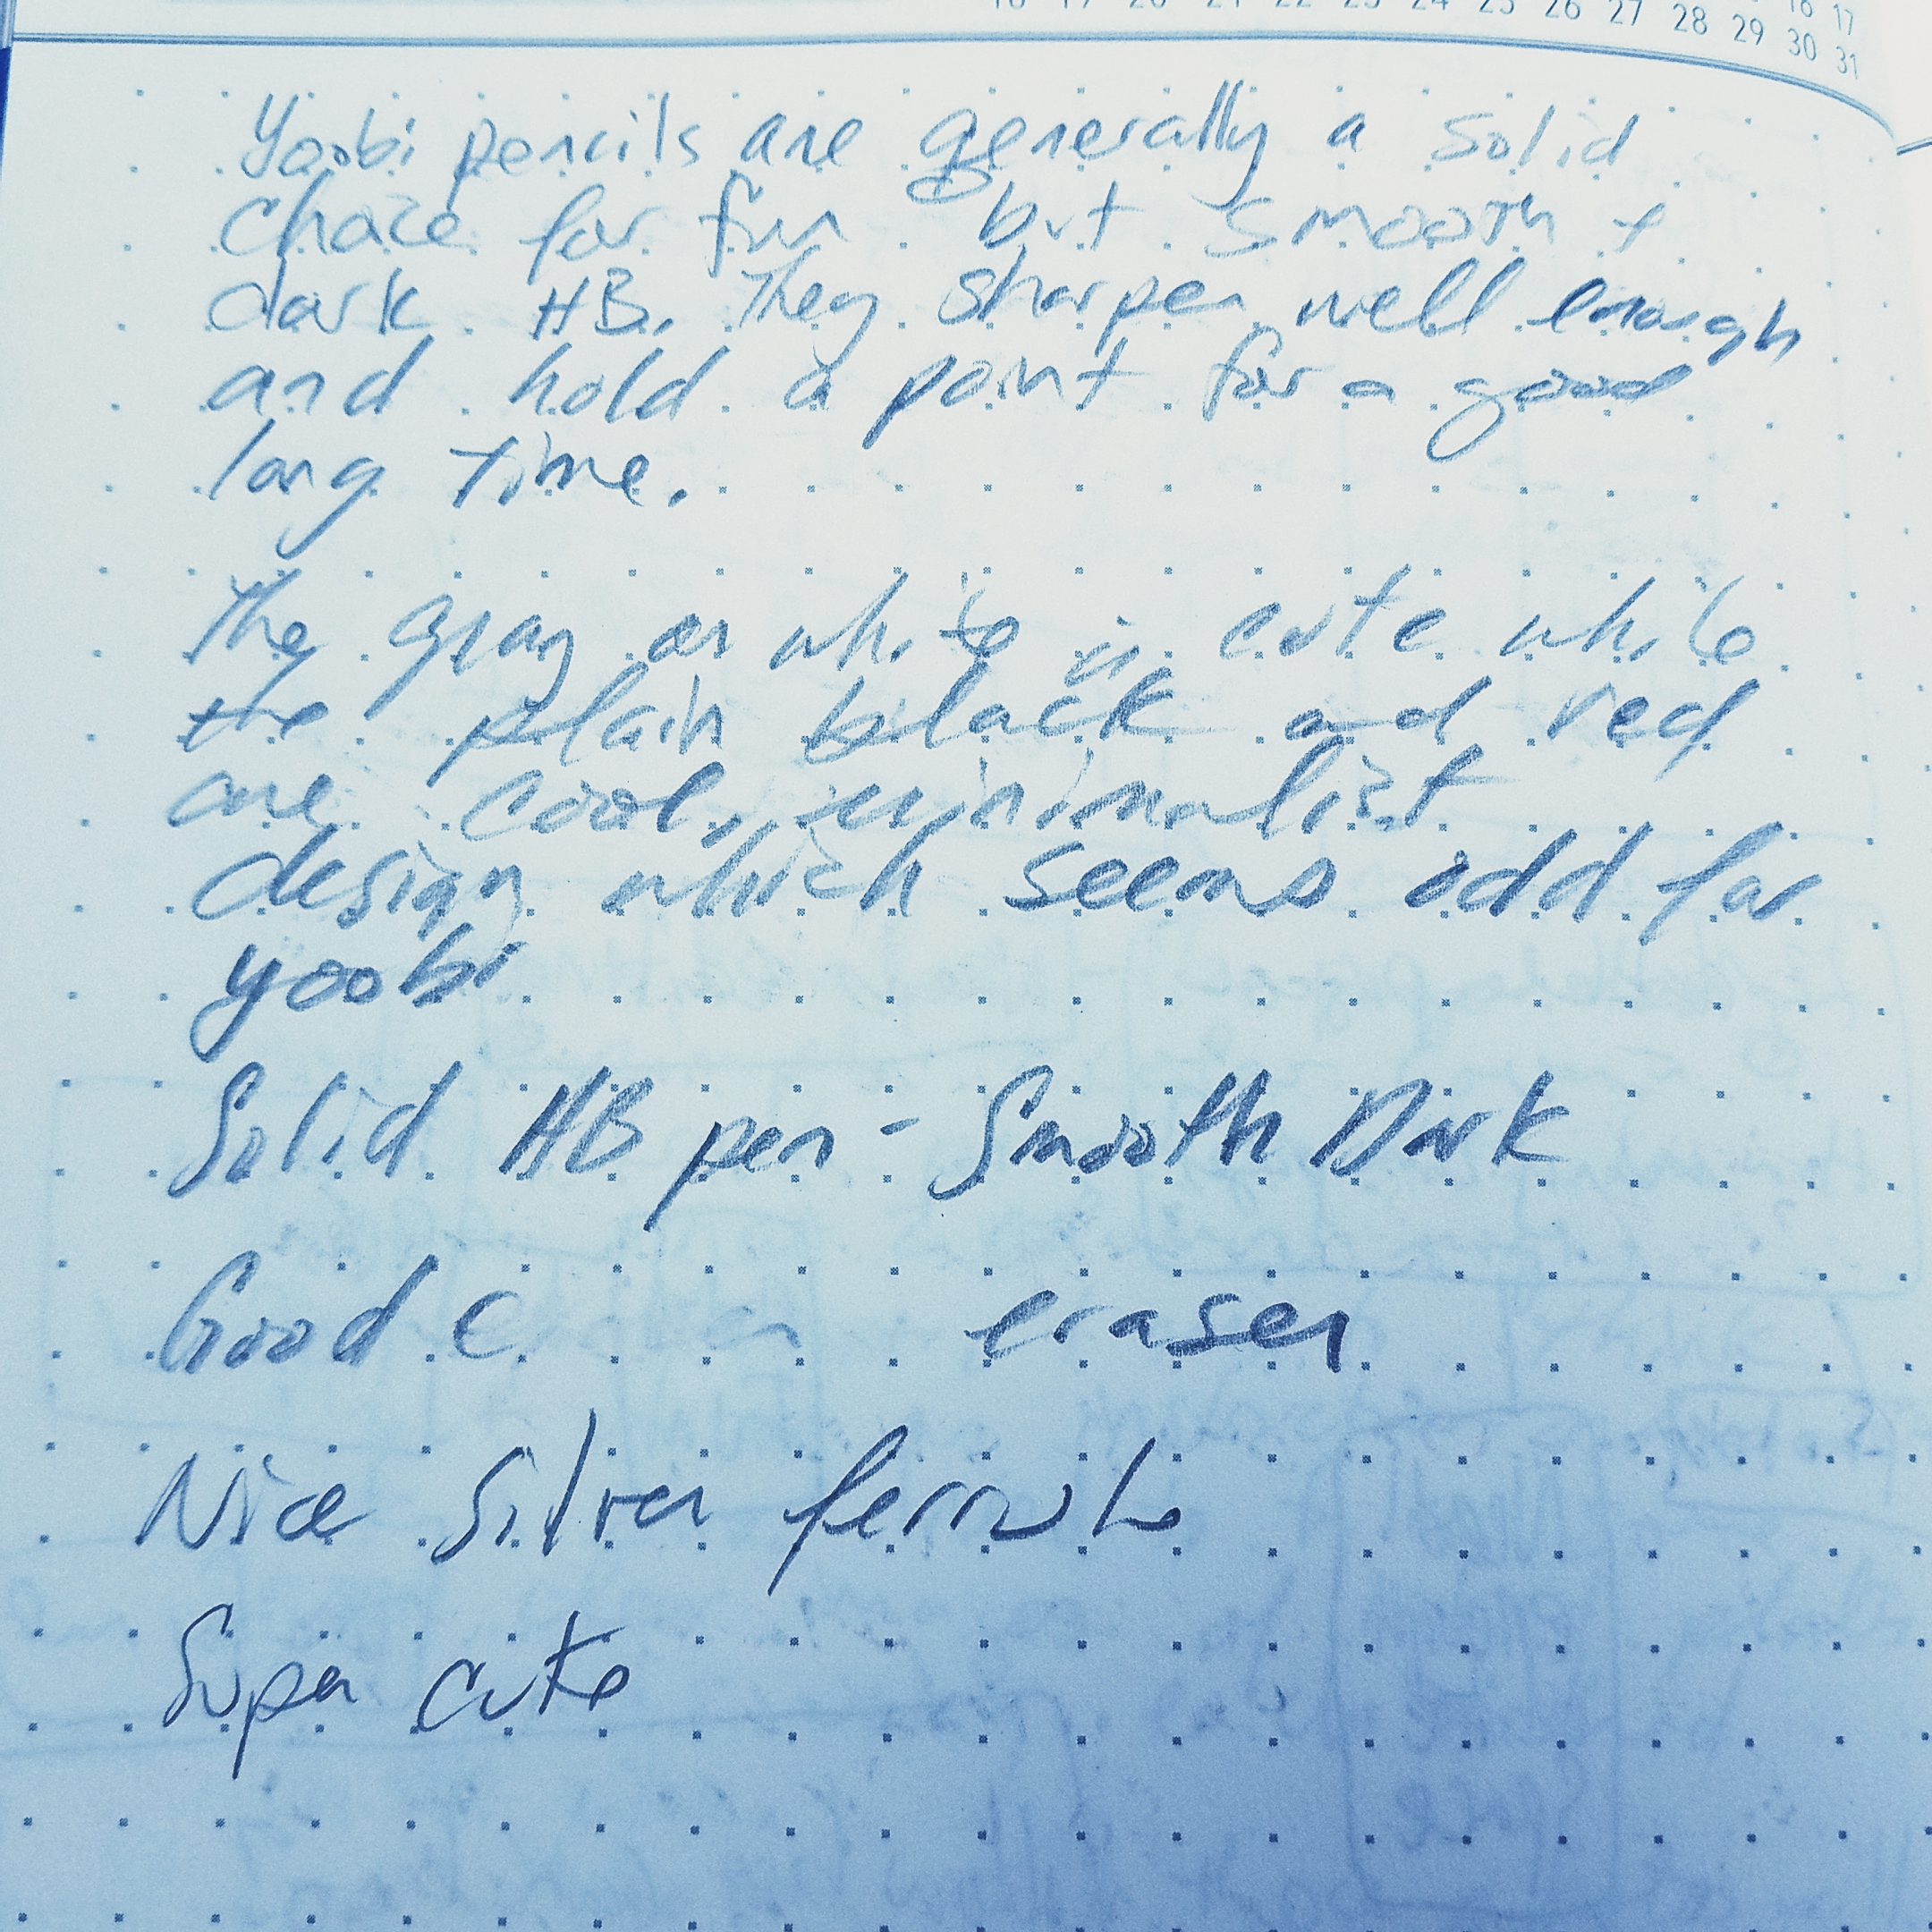 16 17
18 19 20 21 22 23 24 25 26 27 28 29 30 31
Yoobi pencils are generally a solid
choice for fun but smooth +
dark HB. They sharpen well enough
and hold a point for a good
long time.
The gray on white is cute while
the plain black and red
are cool, minimalist
design which seems odd for
yoobi
Solid HB pen - Smooth Dark
Good e eraser
Nice Silver ferrule
Super cute